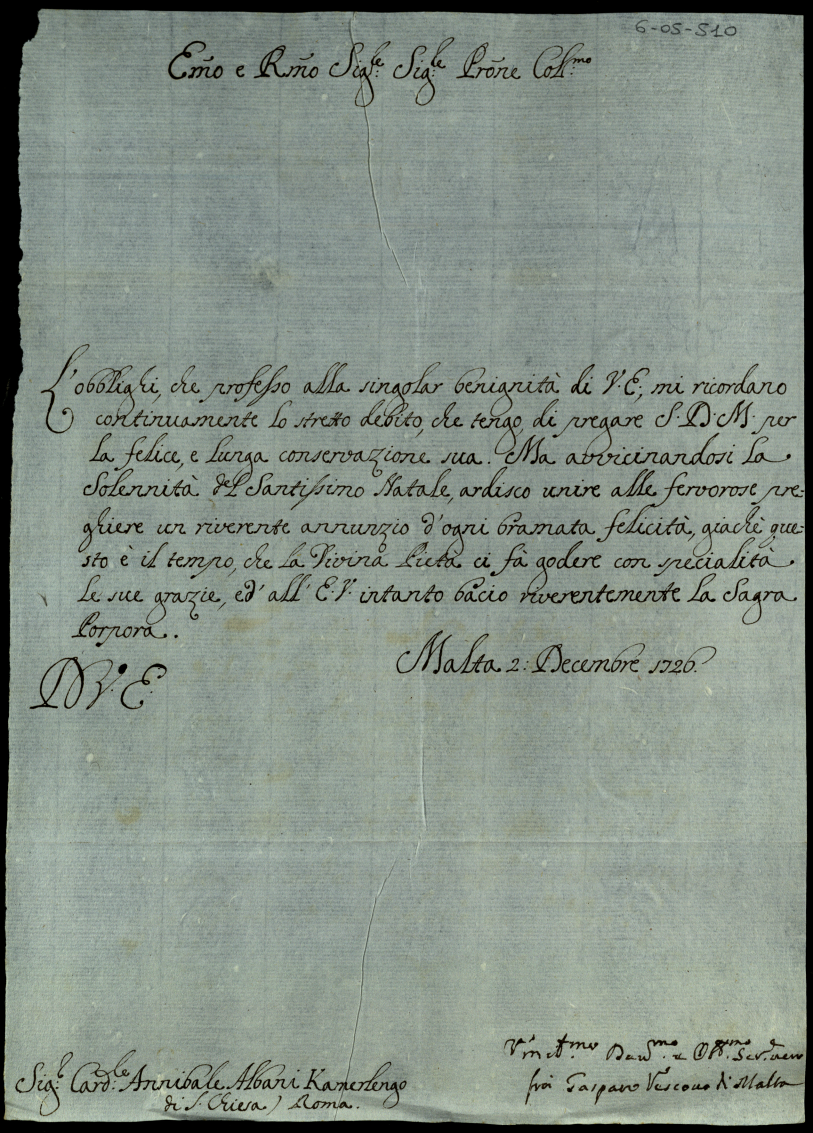 6-05-510
Em̃o e Rm̃o Sig:le Sig:le Prõne Coll:mo
L'obblighi, che professo alla singolar benignità di V.E; mi ricordano
continuamente lo stretto debito, che tengo, di pregare S.D.M. per
la felice, e lunga conservazione sua. Ma avvicinandosi la
Solennità del Santissimo Natale, ardisco unire alle fervorose pre-
ghiere un riverente annunzio d'ogni bramata felicità, giachè que-
sto è il tempo, che la Divina Pieta ci fà godere con specialità
le sue grazie, ed' all' E.V. intanto bacio riverentemente la Sagra
Porpora.
Malta 2: Decembre 1726.
D V. E.
Devmo e Obbmo
Sig:r Card:le Annibale Albani Kamerlengo
frà Gasparo Vescovo di Malta
di S. Chiesa) Roma.